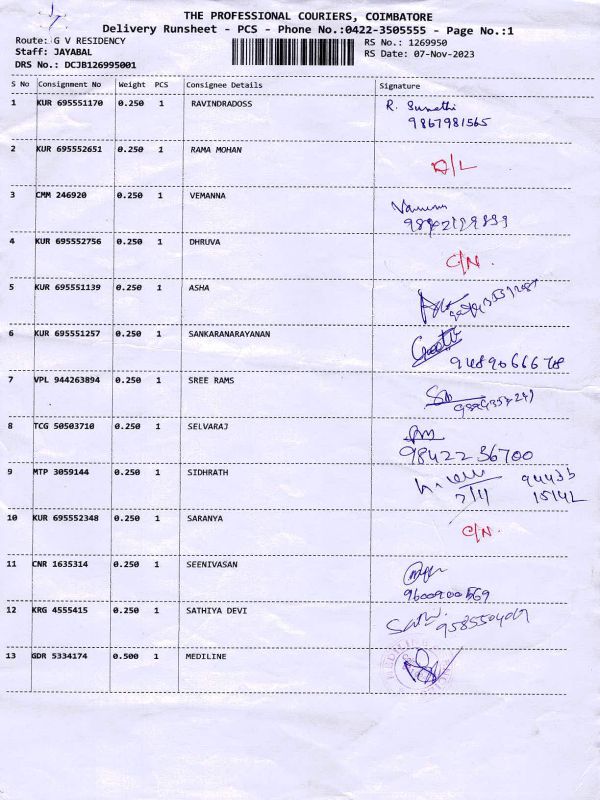 THE PROFESSIONAL COURIERS, COIMBATORE
Delivery Runsheet - PCS - Phone No.:0422-3505555 - Page No.:1
Route: G V RESIDENCY
RS No.: 1269950
Staff: JAYABAL
RS Date: 07-Nov-2023
DRS No.: DCJB126995001
S No Consignment No Weight PCS Consignee Details Signature
1 KUR 695551170 0.250 1 RAVINDRADOSS R. Sumathi
9867981565
2 KUR 695552651 0.250 1 RAMA MOHAN D/L
3 CMM 246920 0.250 1 VEMANNA
4 KUR 695552756 0.250 1 DHRUVA C/N.
5 KUR 695551139 0.250 1 ASHA
6 KUR 695551257 0.250 1 SANKARANARAYANAN
9489066678
7 VPL 944263894 0.250 1 SREE RAMS
8 TCG 50503710 0.250 1 SELVARAJ
9842236700
9 MTP 3059144 0.250 1 SIDHRATH
7/11
10 KUR 695552348 0.250 1 SARANYA C/N.
11 CNR 1635314 0.250 1 SEENIVASAN
9600900569
12 KRG 4555415 0.250 1 SATHIYA DEVI
13 GDR 5334174 0.500 1 MEDILINE